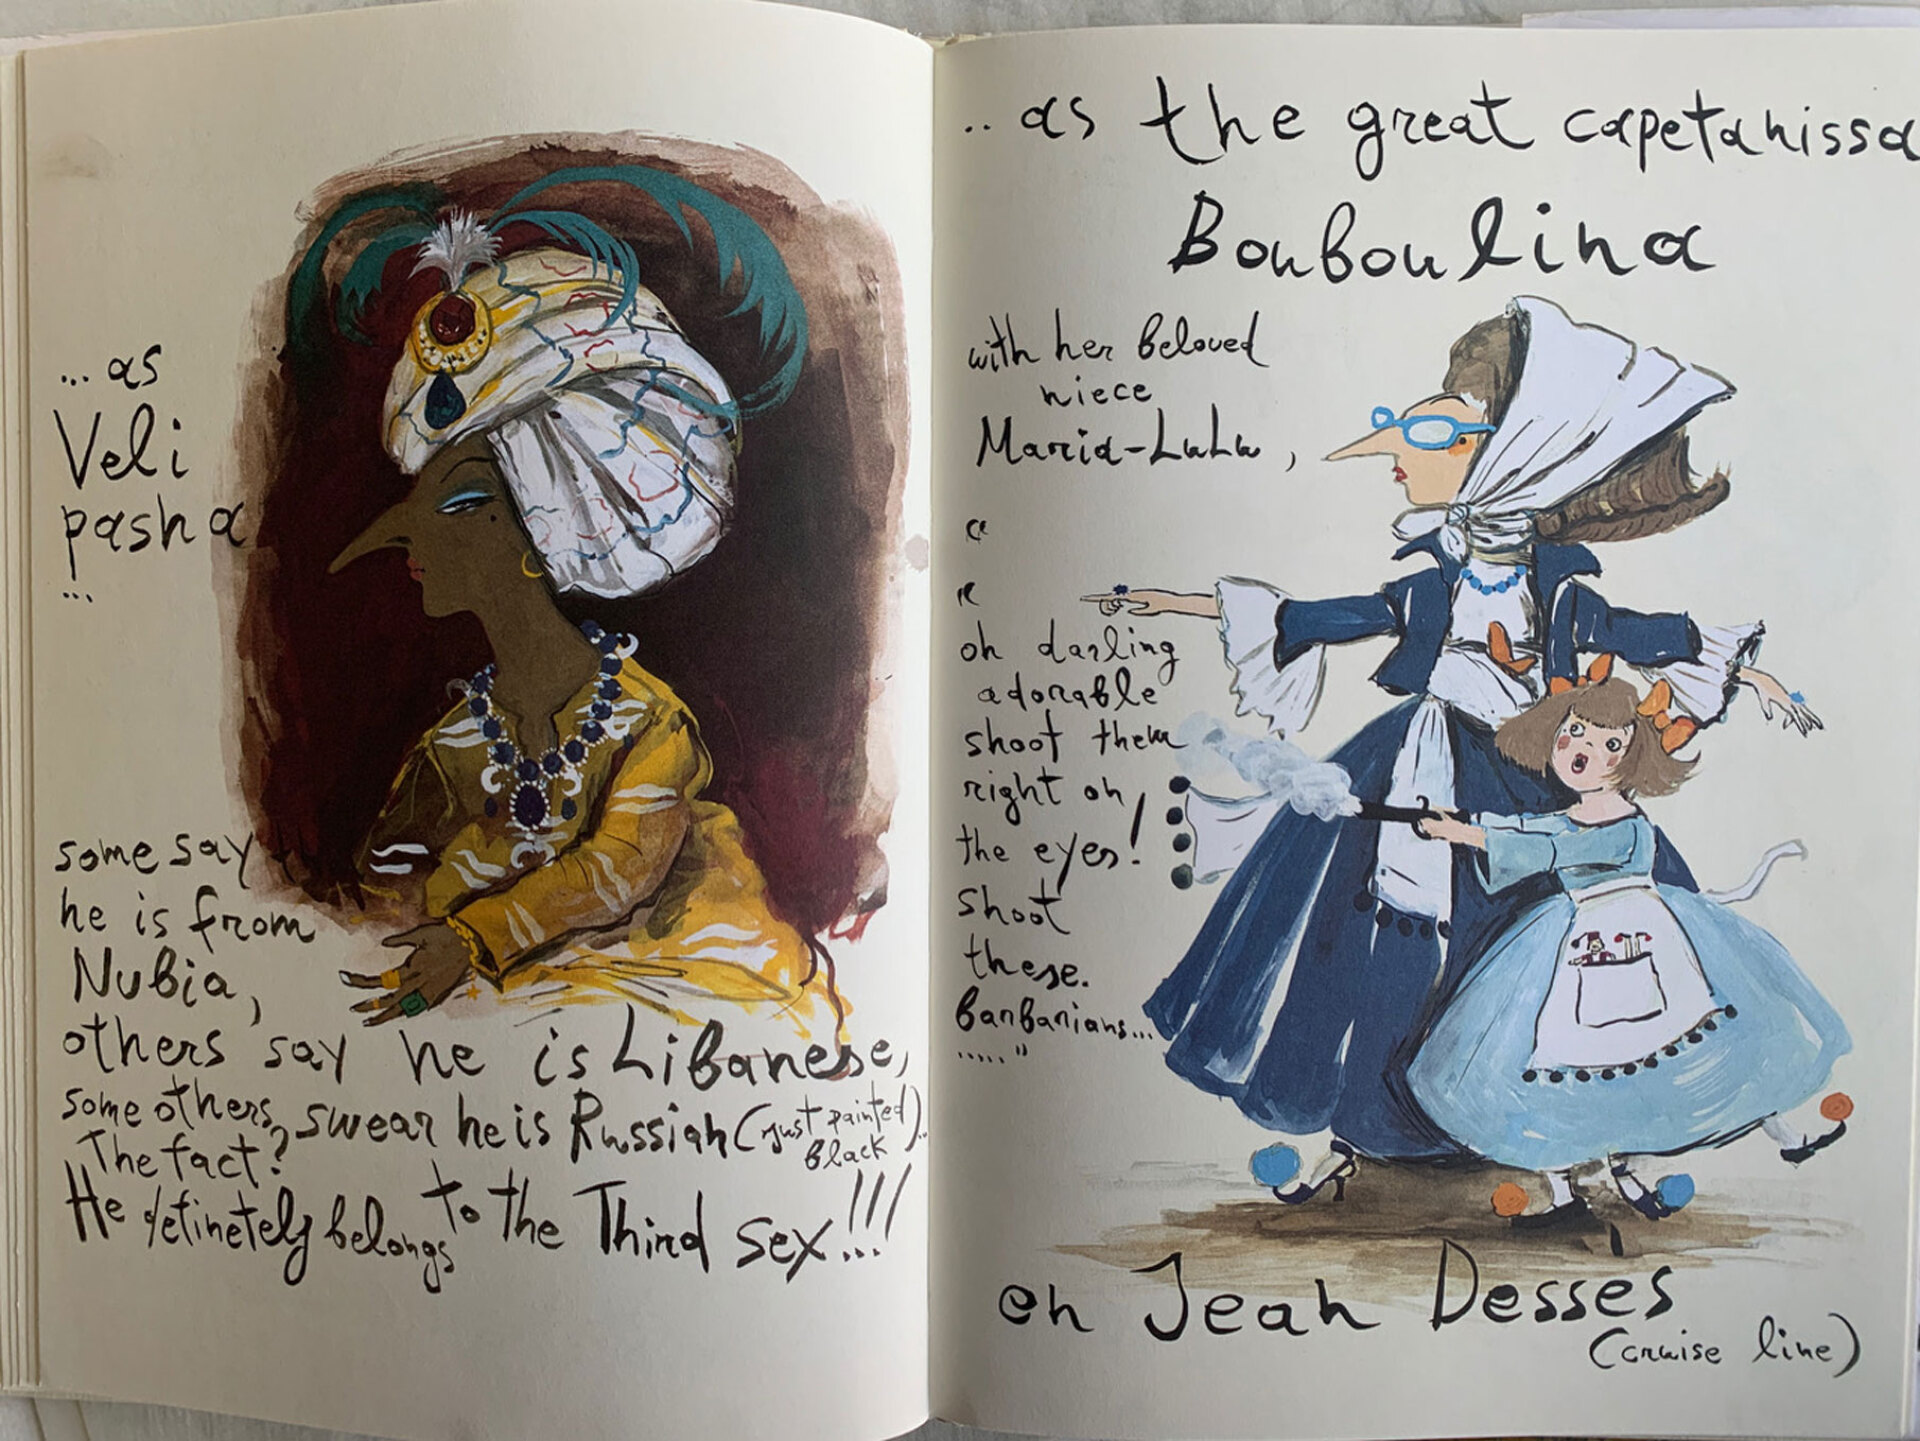 ... as
Veli
pasha
...
some say
he is from
Nubia,
others say he is Libanese,
some others swear he is Russian (just painted black)..
The fact?
He definetely belongs to the Third sex!!!
.. as the great capetanissa
Bouboulina
with her beloved
niece
Maria-LuLu,
"
"
oh darling
adorable
shoot them
right on
the eyes!
shoot
these.
barbarians...
....."
en Jean Desses
(cruise line)